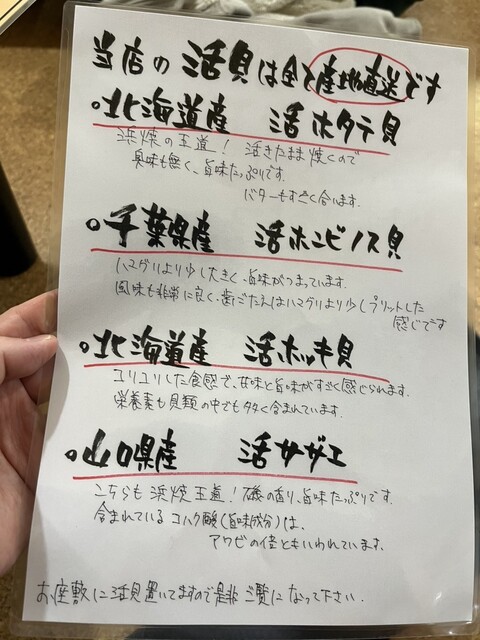 当店の活貝は全て産地直送です
○北海道産 活ホタテ貝
浜焼の王道！ 活きたまま焼くので
臭味も無く、旨味たっぷりです。
バターもすごく合います。
○千葉県産 活ホンビノス貝
ハマグリより少し大きく、旨味がつまっています。
風味も非常に良く、歯ごたえはハマグリより少しプリッとした
感じです
○北海道産 活ホッキ貝
コリコリした食感で、甘味と旨味がすごく感じられます。
栄養素も貝類の中でも多く含まれています。
○山口県産 活サザエ
こちらも浜焼王道！磯の香り、旨味たっぷりです。
含まれているコハク酸(旨味成分)は、
アワビの倍ともいわれています。
お座敷に活貝置いてますので是非ご覧になって下さい.